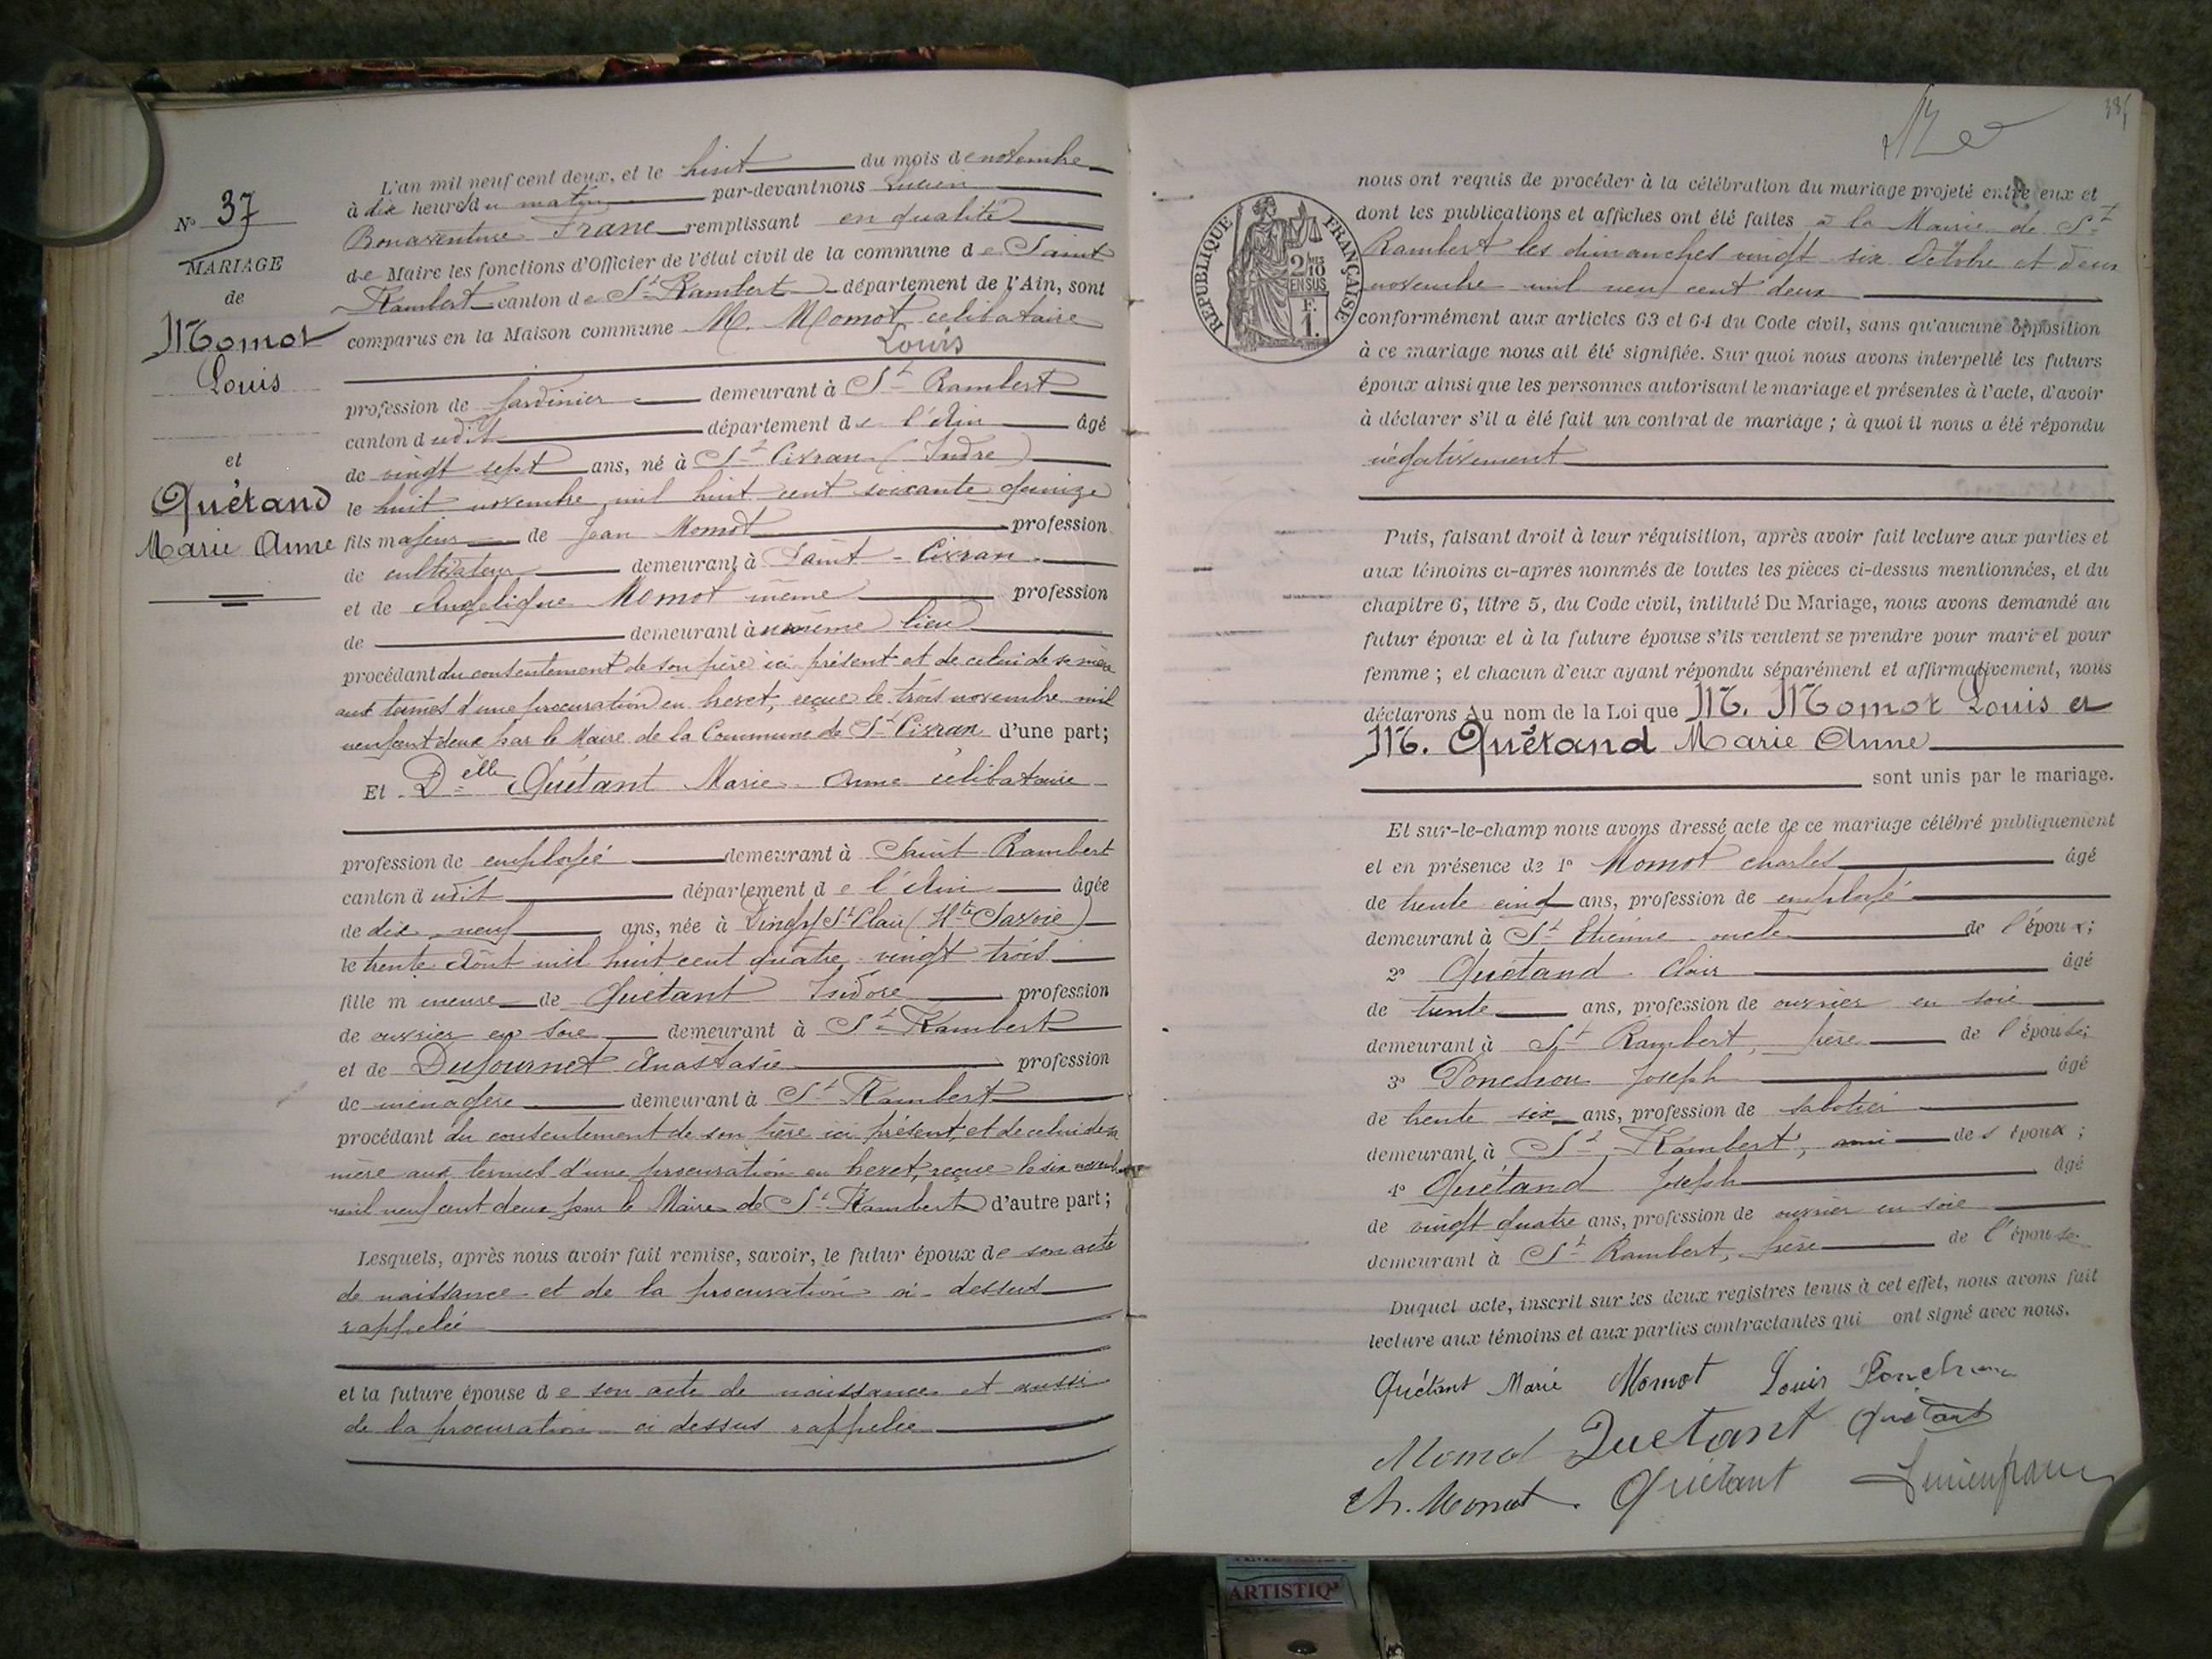 N° 37
MARIAGE
de
Momot
Louis
et
Quétand
Marie Anne
L'an mil neuf cent deux, et le huit du mois de novembre
à dix heures du matin par-devant nous Lucien
Bonaventure Franc remplissant en qualité
de Maire les fonctions d'Officier de l'état civil de la commune de Saint
Rambert canton de St Rambert département de l'Ain, sont
comparus en la Maison commune M. Momot célibataire
Louis
profession de jardinier demeurant à St Rambert
canton dudit département de l'Ain âgé
de vingt sept ans, né à St Civran (Indre)
le huit novembre mil huit cent soixante quinze
fils majeur de Jean Momot profession
de cultivateur demeurant à Saint-Civran
et de Angélique Momot même profession
de demeurant à même lieu
procédant du consentement de son père ici présent et de celui de sa mère
aux termes d'une procuration en brevet, reçue le trois novembre mil
neuf cent deux par le Maire de la Commune de St Civran d'une part;
Et Delle Quétant Marie-Anne célibataire
profession de employée demeurant à Saint Rambert
canton dudit département de l'Ain âgée
de dix-neuf ans, née à Dingy St Clair (Hte Savoie)
le trente Août mil huit cent quatre-vingt trois
fille mineure de Quétant Isidore profession
de ouvrier en soie demeurant à St Rambert
et de Dufournet Anastasie profession
de ménagère demeurant à St Rambert
procédant du consentement de son père ici présent, et de celui de sa
mère aux termes d'une procuration en brevet, reçue le six novembre
mil neuf cent deux par le Maire de St Rambert d'autre part;
Lesquels, après nous avoir fait remise, savoir, le futur époux de son acte
de naissance et de la procuration ci-dessus
rappelée
et la future épouse de son acte de naissance et aussi
de la procuration ci dessus rappelée
nous ont requis de procéder à la célébration du mariage projeté entre eux et
dont les publications et affiches ont été faites à la Mairie de St
Rambert les dimanches vingt six Octobre et deux
novembre mil neuf cent deux
RÉPUBLIQUE FRANÇAISE
2/10 EN SUS
F. 1.
conformément aux articles 63 et 64 du Code civil, sans qu'aucune opposition
à ce mariage nous ait été signifiée. Sur quoi nous avons interpellé les futurs
époux ainsi que les personnes autorisant le mariage et présentes à l'acte, d'avoir
à déclarer s'il a été fait un contrat de mariage ; à quoi il nous a été répondu
négativement
Puis, faisant droit à leur réquisition, après avoir fait lecture aux parties et
aux témoins ci-après nommés de toutes les pièces ci-dessus mentionnées, et du
chapitre 6, titre 5, du Code civil, intitulé Du Mariage, nous avons demandé au
futur époux et à la future épouse s'ils veulent se prendre pour mari et pour
femme ; et chacun d'eux ayant répondu séparément et affirmativement, nous
déclarons Au nom de la Loi que M. Momot Louis et
M. Quétand Marie Anne
sont unis par le mariage.
Et sur-le-champ nous avons dressé acte de ce mariage célébré publiquement
et en présence de 1° Momot Charles âgé
de trente cinq ans, profession de employé
demeurant à St Etienne oncle de l'époux;
2° Quétand Clair âgé
de trente ans, profession de ouvrier en soie
demeurant à St Rambert, frère de l'épouse;
3° Ponchon Joseph âgé
de trente six ans, profession de sabotier
demeurant à St Rambert, ami des époux;
4° Quétand Joseph âgé
de vingt quatre ans, profession de ouvrier en soie
demeurant à St Rambert, frère de l'épouse
Duquel acte, inscrit sur les deux registres tenus à cet effet, nous avons fait
lecture aux témoins et aux parties contractantes qui ont signé avec nous.
Quétant Marie Momot Louis Ponchon
Momot Quetant Quétant
Ch. Momot. Quétant Lucien franc
ARTISTIQ